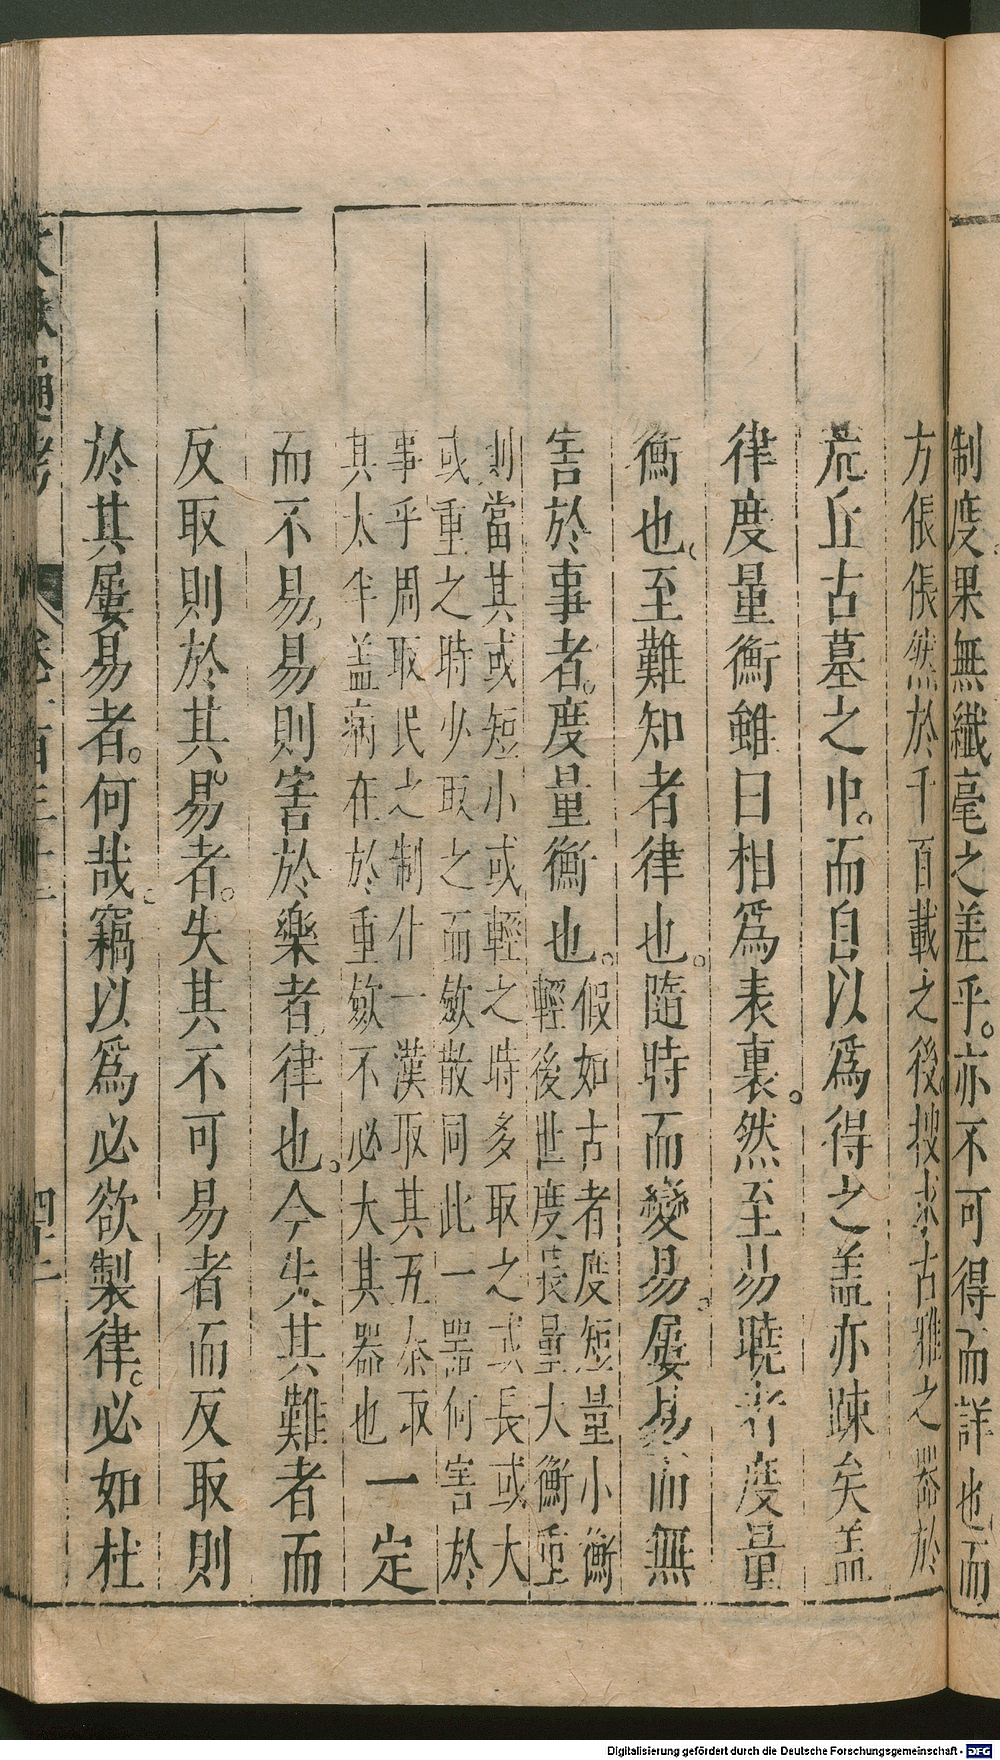 制度果無纖毫之差乎。亦不可得而詳也而
方倀倀然於千百載之後搜求古雅之器於
荒丘古墓之中。而自以為得之盖亦踈矣盖
律度量衡雖曰相為表裏。然至易曉者度量
衡也、至難知者律也。隨時而變易。屢易而無
害於事者。度量衡也。假如古者度短量小衡
輕後世度長量大衡重
則當其或短小或輕之時多取之或長或大
或重之時少取之而斂散同此一器何害於
事乎周取民之制什一漢取其五泰取
其太半盖病在於重斂不必大其器也一定
而不易、易則害於樂者、律也。今失其難者而
反取則於其易者。失其不可易者而反取則
於其屢易者。何哉。竊以為必欲製律。必如杜
文獻通考 卷一百三十三 四十二
Digitalisierung gefördert durch die Deutsche Forschungsgemeinschaft - DFG